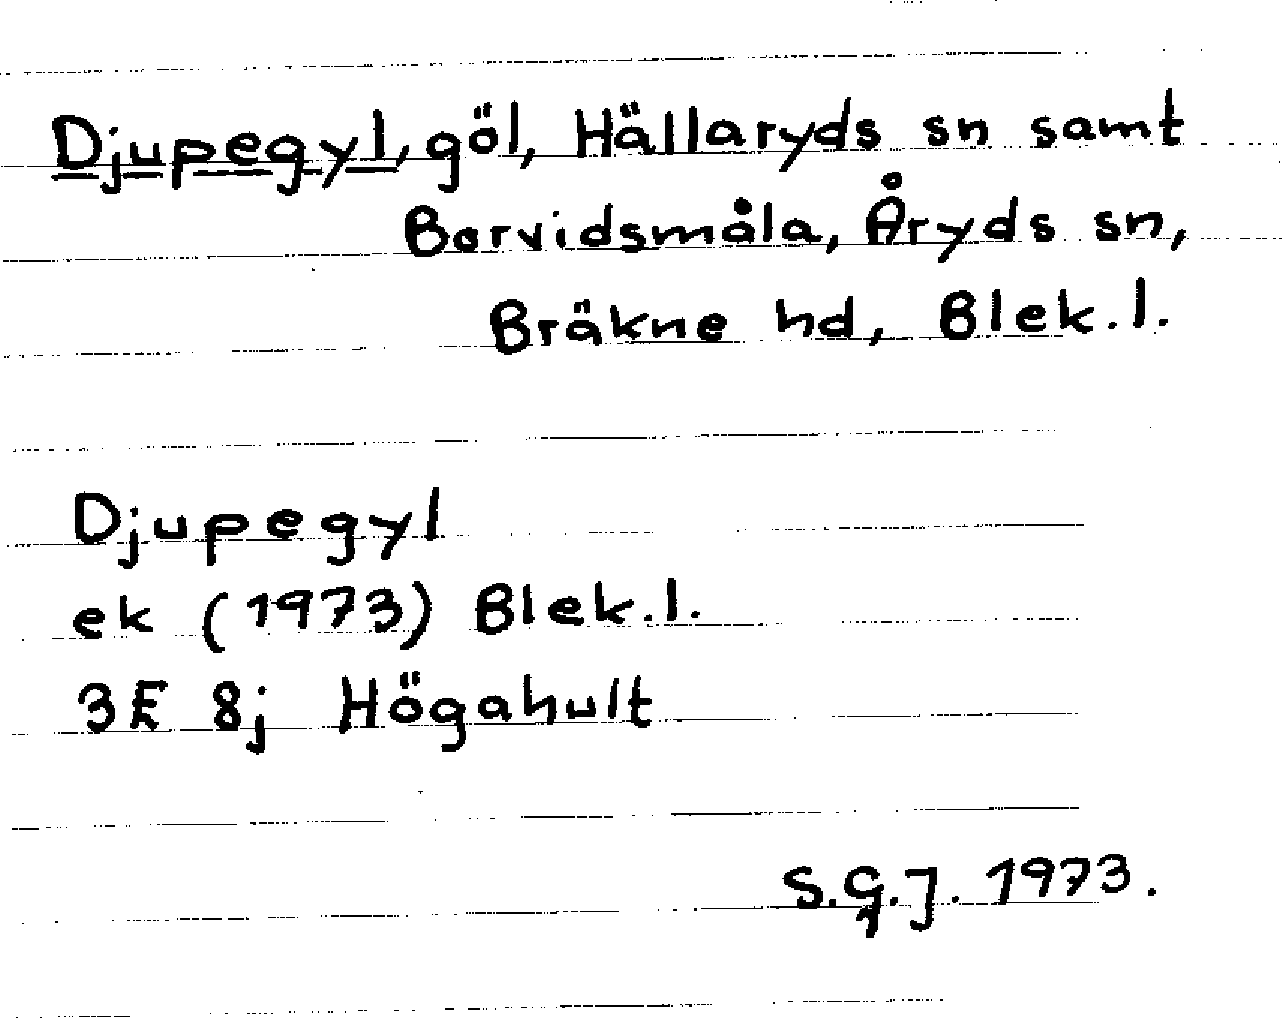 Djupegyl, göl, Hällaryds sn samt
Borvidsmåla, Åryds sn,
Bräkne hd, Blek.l.
Djupegyl
ek (1973) Blek.l.
3E 8j Högahult
S.G.J. 1973.